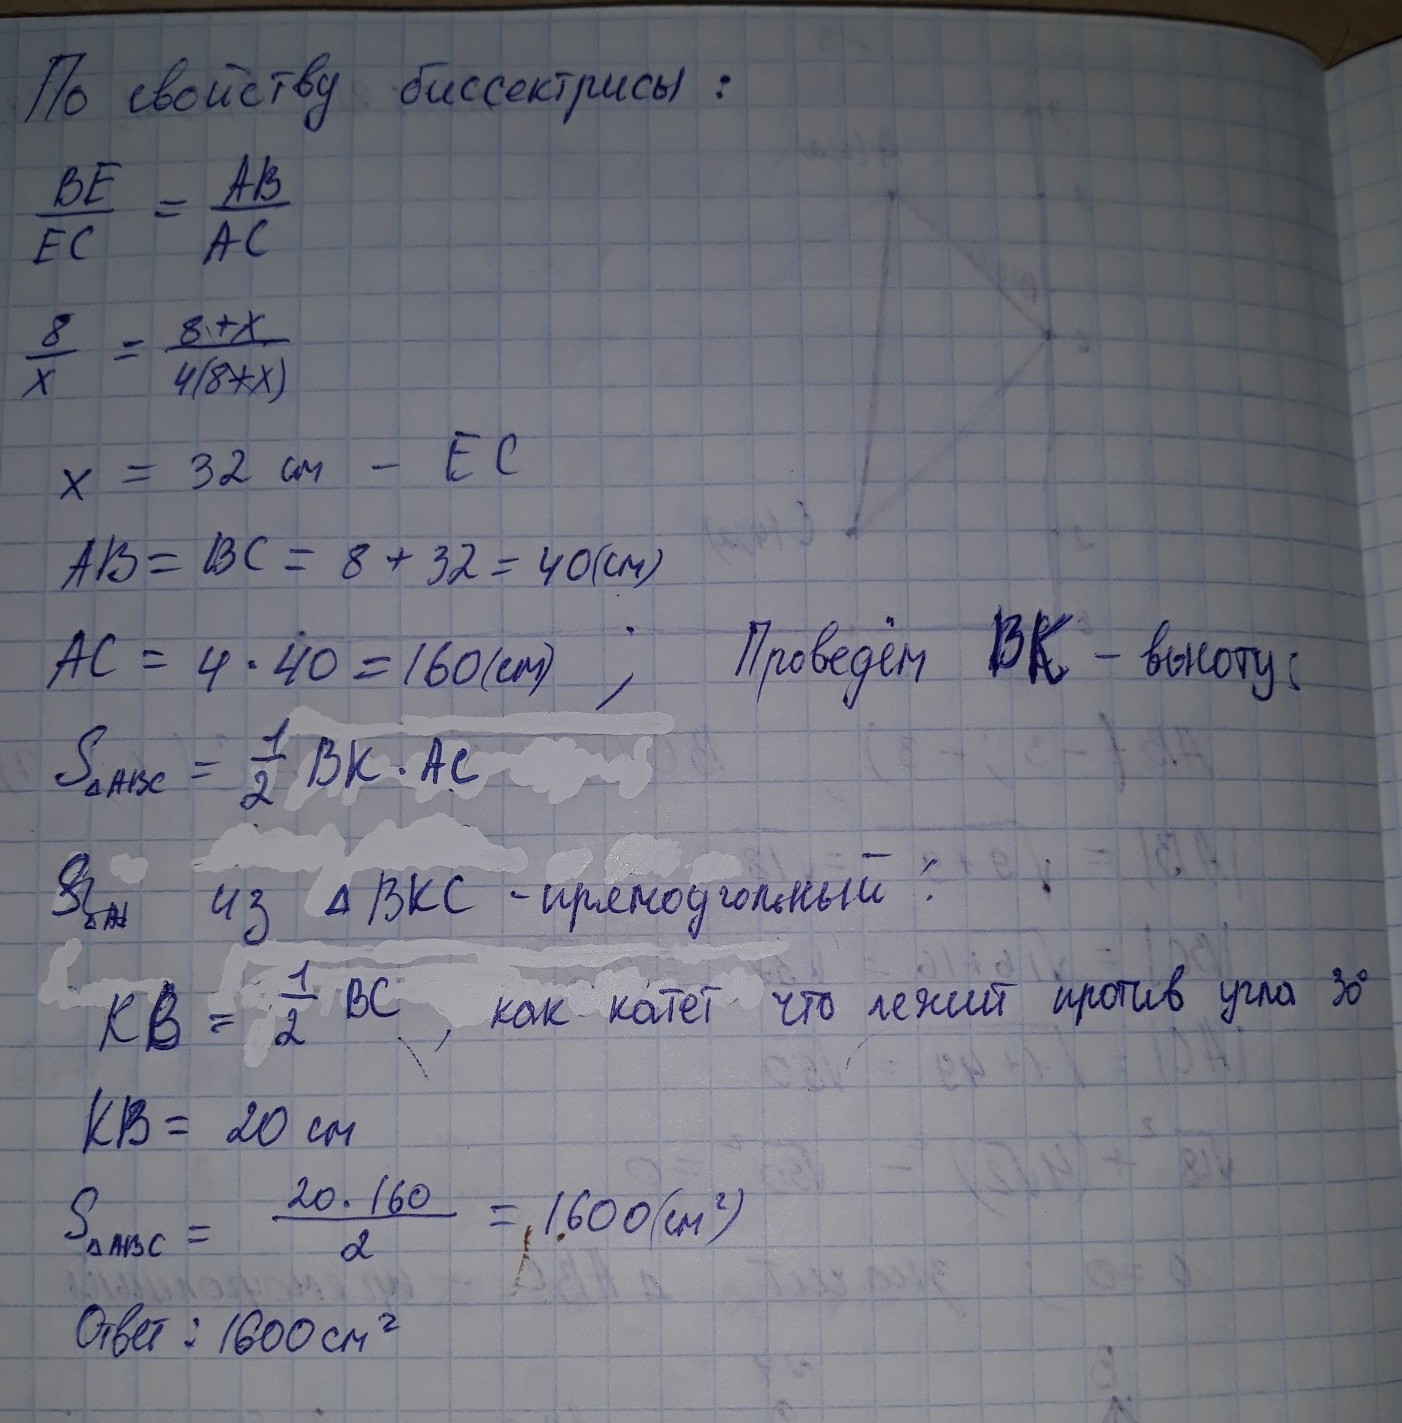 По свойству биссектрисы :
BE/EC = AB/AC
8/x = 8+x/4(8+x)
x = 32 см - EC
AB = BC = 8 + 32 = 40(см)
AC = 4 · 40 = 160(см) ; Проведём BK - высоту;
S△ABC = 1/2 BK · AC
из △ BKC - прямоугольный :
KB = 1/2 BC , как катет что лежит против угла 30°
KB = 20 см
S△ABC = 20 · 160/2 = 1600(см²)
Ответ : 1600 см²